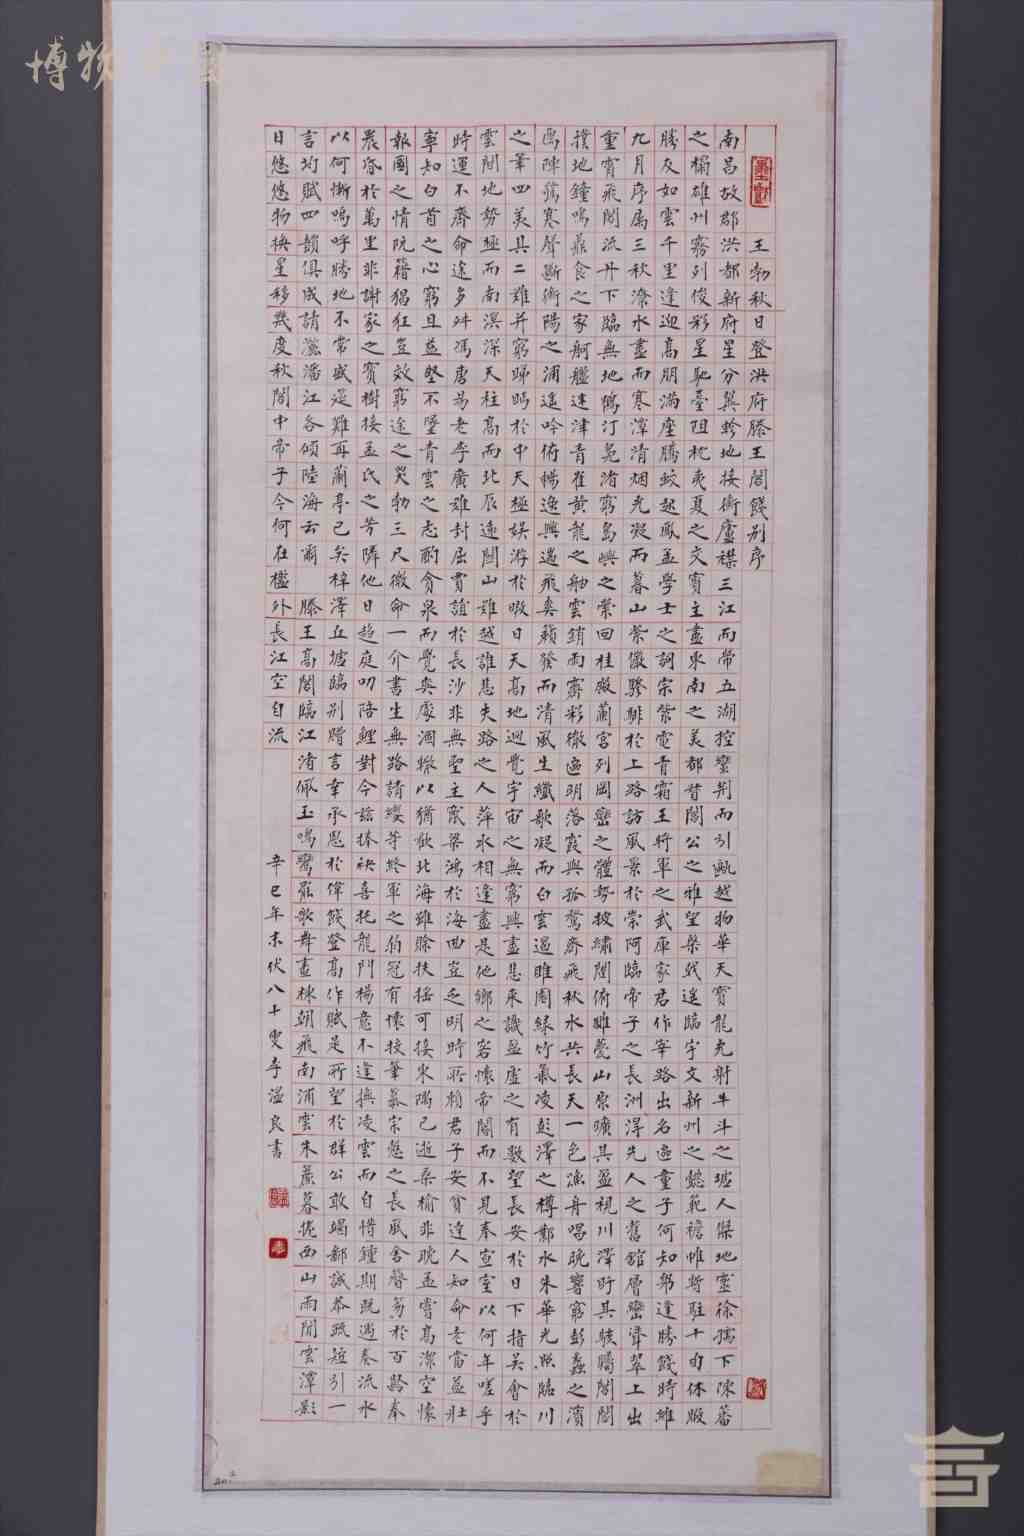 王勃秋日登洪府滕王閣餞別序
南昌故郡洪都新府星分翼軫地接衡廬襟三江而帶五湖控蠻荊而引甌越物華天寶龍光射牛斗之墟人傑地靈徐孺下陳蕃
之榻雄州霧列俊彩星馳臺隍枕夷夏之交賓主盡東南之美都督閻公之雅望棨戟遙臨宇文新州之懿範襜帷暫駐十旬休暇
勝友如雲千里逢迎高朋滿座騰蛟起鳳孟學士之詞宗紫電青霜王將軍之武庫家君作宰路出名區童子何知躬逢勝餞時維
九月序屬三秋潦水盡而寒潭清烟光凝而暮山紫儼驂騑於上路訪風景於崇阿臨帝子之長洲得先人之舊館層巒聳翠上出
重霄飛閣流丹下臨無地鶴汀鳧渚窮島嶼之縈回桂殿蘭宮列岡巒之體勢披繡闥俯雕甍山原曠其盈視川澤盱其駭矚閭閻
撲地鐘鳴鼎食之家舸艦迷津青雀黃龍之舳雲銷雨霽彩徹區明落霞與孤鶩齊飛秋水共長天一色漁舟唱晚響窮彭蠡之濱
雁陣驚寒聲斷衡陽之浦遙吟俯暢逸興遄飛爽籟發而清風生纖歌凝而白雲遏睢園綠竹氣凌彭澤之樽鄴水朱華光照臨川
之筆四美具二難并窮睇眄於中天極娛游於暇日天高地迥覺宇宙之無窮興盡悲來識盈虛之有數望長安於日下指吳會於
雲間地勢極而南溟深天柱高而北辰遠關山難越誰悲失路之人萍水相逢盡是他鄉之客懷帝閽而不見奉宣室以何年嗟乎
時運不齊命途多舛馮唐易老李廣難封屈賈誼於長沙非無聖主竄梁鴻於海曲豈乏明時所賴君子安貧達人知命老當益壯
寧知白首之心窮且益堅不墜青雲之志酌貪泉而覺爽處涸轍以猶歡北海雖賒扶搖可接東隅已逝桑榆非晚孟嘗高潔空懷
報國之情阮籍猖狂豈效窮途之哭勃三尺微命一介書生無路請纓等終軍之弱冠有懷投筆慕宗愨之長風舍簪笏於百齡奉
晨昏於萬里非謝家之寶樹接孟氏之芳隣他日趨庭叨陪鯉對今茲捧袂喜托龍門楊意不逢撫凌雲而自惜鍾期既遇奏流水
以何慚嗚呼勝地不常盛筵難再蘭亭已矣梓澤丘墟臨別贈言幸承恩於偉餞登高作賦是所望於群公敢竭鄙誠恭疏短引一
言均賦四韻俱成請灑潘江各傾陸海云爾 滕王高閣臨江渚佩玉鳴鸞罷歌舞畫棟朝飛南浦雲朱簾暮捲西山雨閒雲潭影
日悠悠物換星移幾度秋閣中帝子今何在檻外長江空自流
辛巳年末伏八十叟李溫良書
博物